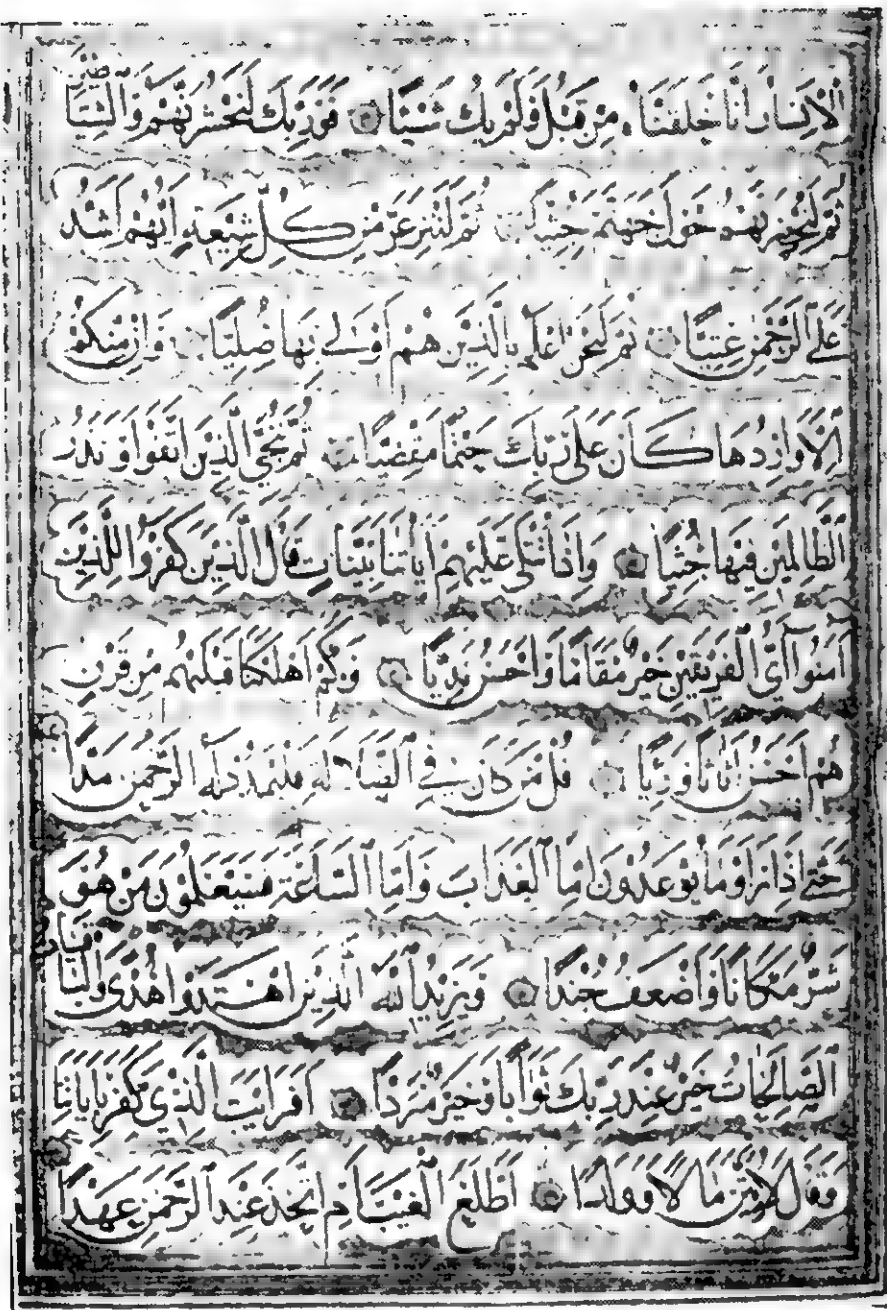 الْاِنْسَانُ اَنَّا خَلَقْنَاهُ مِنْ قَبْلُ وَلَمْ يَكُ شَيْئًا فَوَرَبِّكَ لَنَحْشُرَنَّهُمْ وَالشَّيَاطِينَ
ثُمَّ لَنُحْضِرَنَّهُمْ حَوْلَ جَهَنَّمَ جِثِيًّا ثُمَّ لَنَنْزِعَنَّ مِنْ كُلِّ شِيعَةٍ اَيُّهُمْ اَشَدُّ
عَلَى الرَّحْمٰنِ عِتِيًّا ثُمَّ لَنَحْنُ اَعْلَمُ بِالَّذِينَ هُمْ اَوْلٰى بِهَا صِلِيًّا وَاِنْ مِنْكُمْ
اِلَّا وَارِدُهَا كَانَ عَلٰى رَبِّكَ حَتْمًا مَقْضِيًّا ثُمَّ نُنَجِّي الَّذِينَ اتَّقَوْا وَنَذَرُ
الظَّالِمِينَ فِيهَا جِثِيًّا وَاِذَا تُتْلٰى عَلَيْهِمْ اٰيَاتُنَا بَيِّنَاتٍ قَالَ الَّذِينَ كَفَرُوا لِلَّذِينَ
اٰمَنُوا اَيُّ الْفَرِيقَيْنِ خَيْرٌ مَقَامًا وَاَحْسَنُ نَدِيًّا وَكَمْ اَهْلَكْنَا قَبْلَهُمْ مِنْ قَرْنٍ
هُمْ اَحْسَنُ اَثَاثًا وَرِئْيًا قُلْ مَنْ كَانَ فِي الضَّلَالَةِ فَلْيَمْدُدْ لَهُ الرَّحْمٰنُ مَدًّا
حَتّٰى اِذَا رَاَوْا مَا يُوعَدُونَ اِمَّا الْعَذَابَ وَاِمَّا السَّاعَةَ فَسَيَعْلَمُونَ مَنْ هُوَ
شَرٌّ مَكَانًا وَاَضْعَفُ جُنْدًا وَيَزِيدُ اللّٰهُ الَّذِينَ اهْتَدَوْا هُدًى وَالْبَاقِيَاتُ
الصَّالِحَاتُ خَيْرٌ عِنْدَ رَبِّكَ ثَوَابًا وَخَيْرٌ مَرَدًّا اَفَرَاَيْتَ الَّذِي كَفَرَ بِاٰيَاتِنَا
وَقَالَ لَاُوتَيَنَّ مَالًا وَوَلَدًا اَطَّلَعَ الْغَيْبَ اَمِ اتَّخَذَ عِنْدَ الرَّحْمٰنِ عَهْدًا